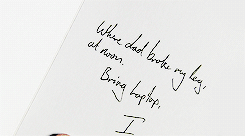 Where dad broke my leg,
at noon.
Bring laptop,
I